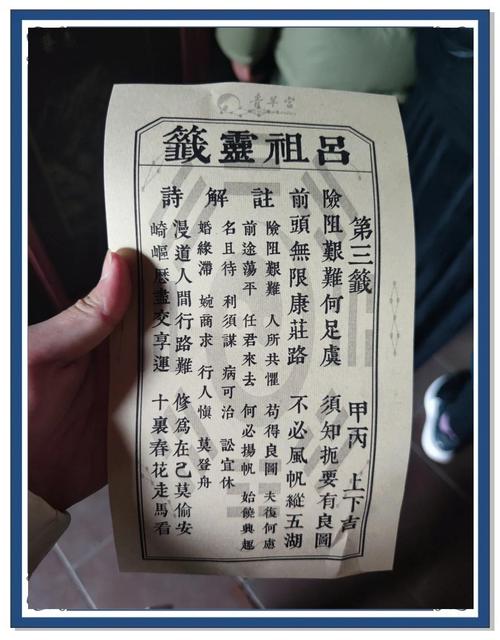 青羊宮
呂祖靈籤
第三籤 甲丙 上下吉
險阻艱難何足虞 須知扼要有良圖
前頭無限康莊路 不必風帆縱五湖
註
解
詩
險阻艱難 人所共懼 苟得良圖 夫復何慮
前途蕩平 任君來去 何必揚帆 始饒興趣
名且待 利須謀 病可治 訟宜休
婚緣滯 婉商求 行人慎 莫登舟
漫道人間行路難 修為在己莫偷安
崎嶇歷盡交享運 十裏春花走馬看